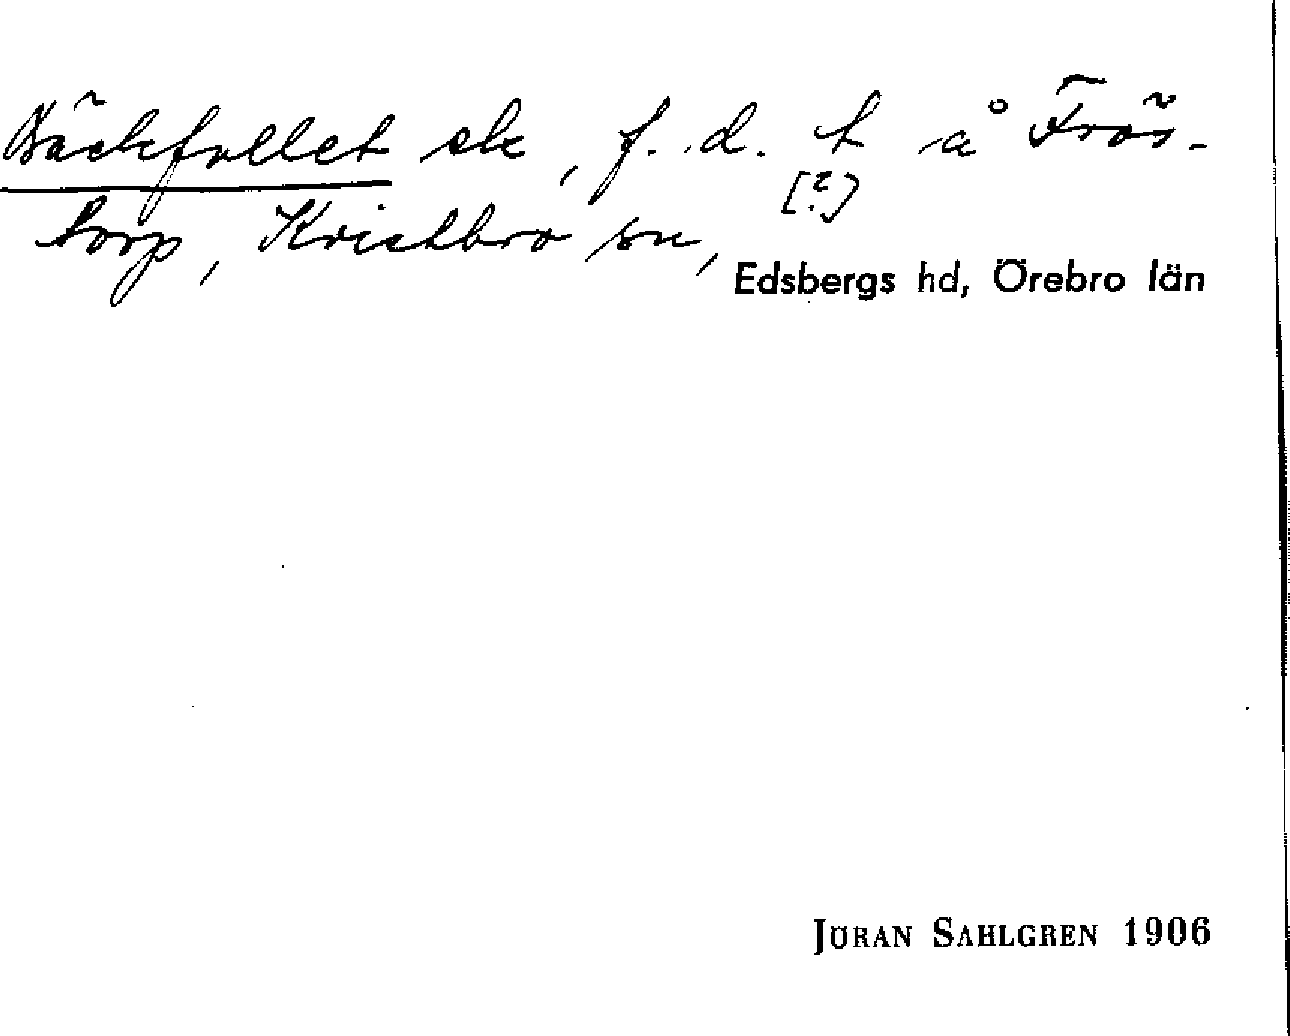 Bäckfallet sk, f. d. t å Frös-
[?]
torp, Kvistbro sn,
Edsbergs hd, Örebro län
JÖRAN SAHLGREN 1906